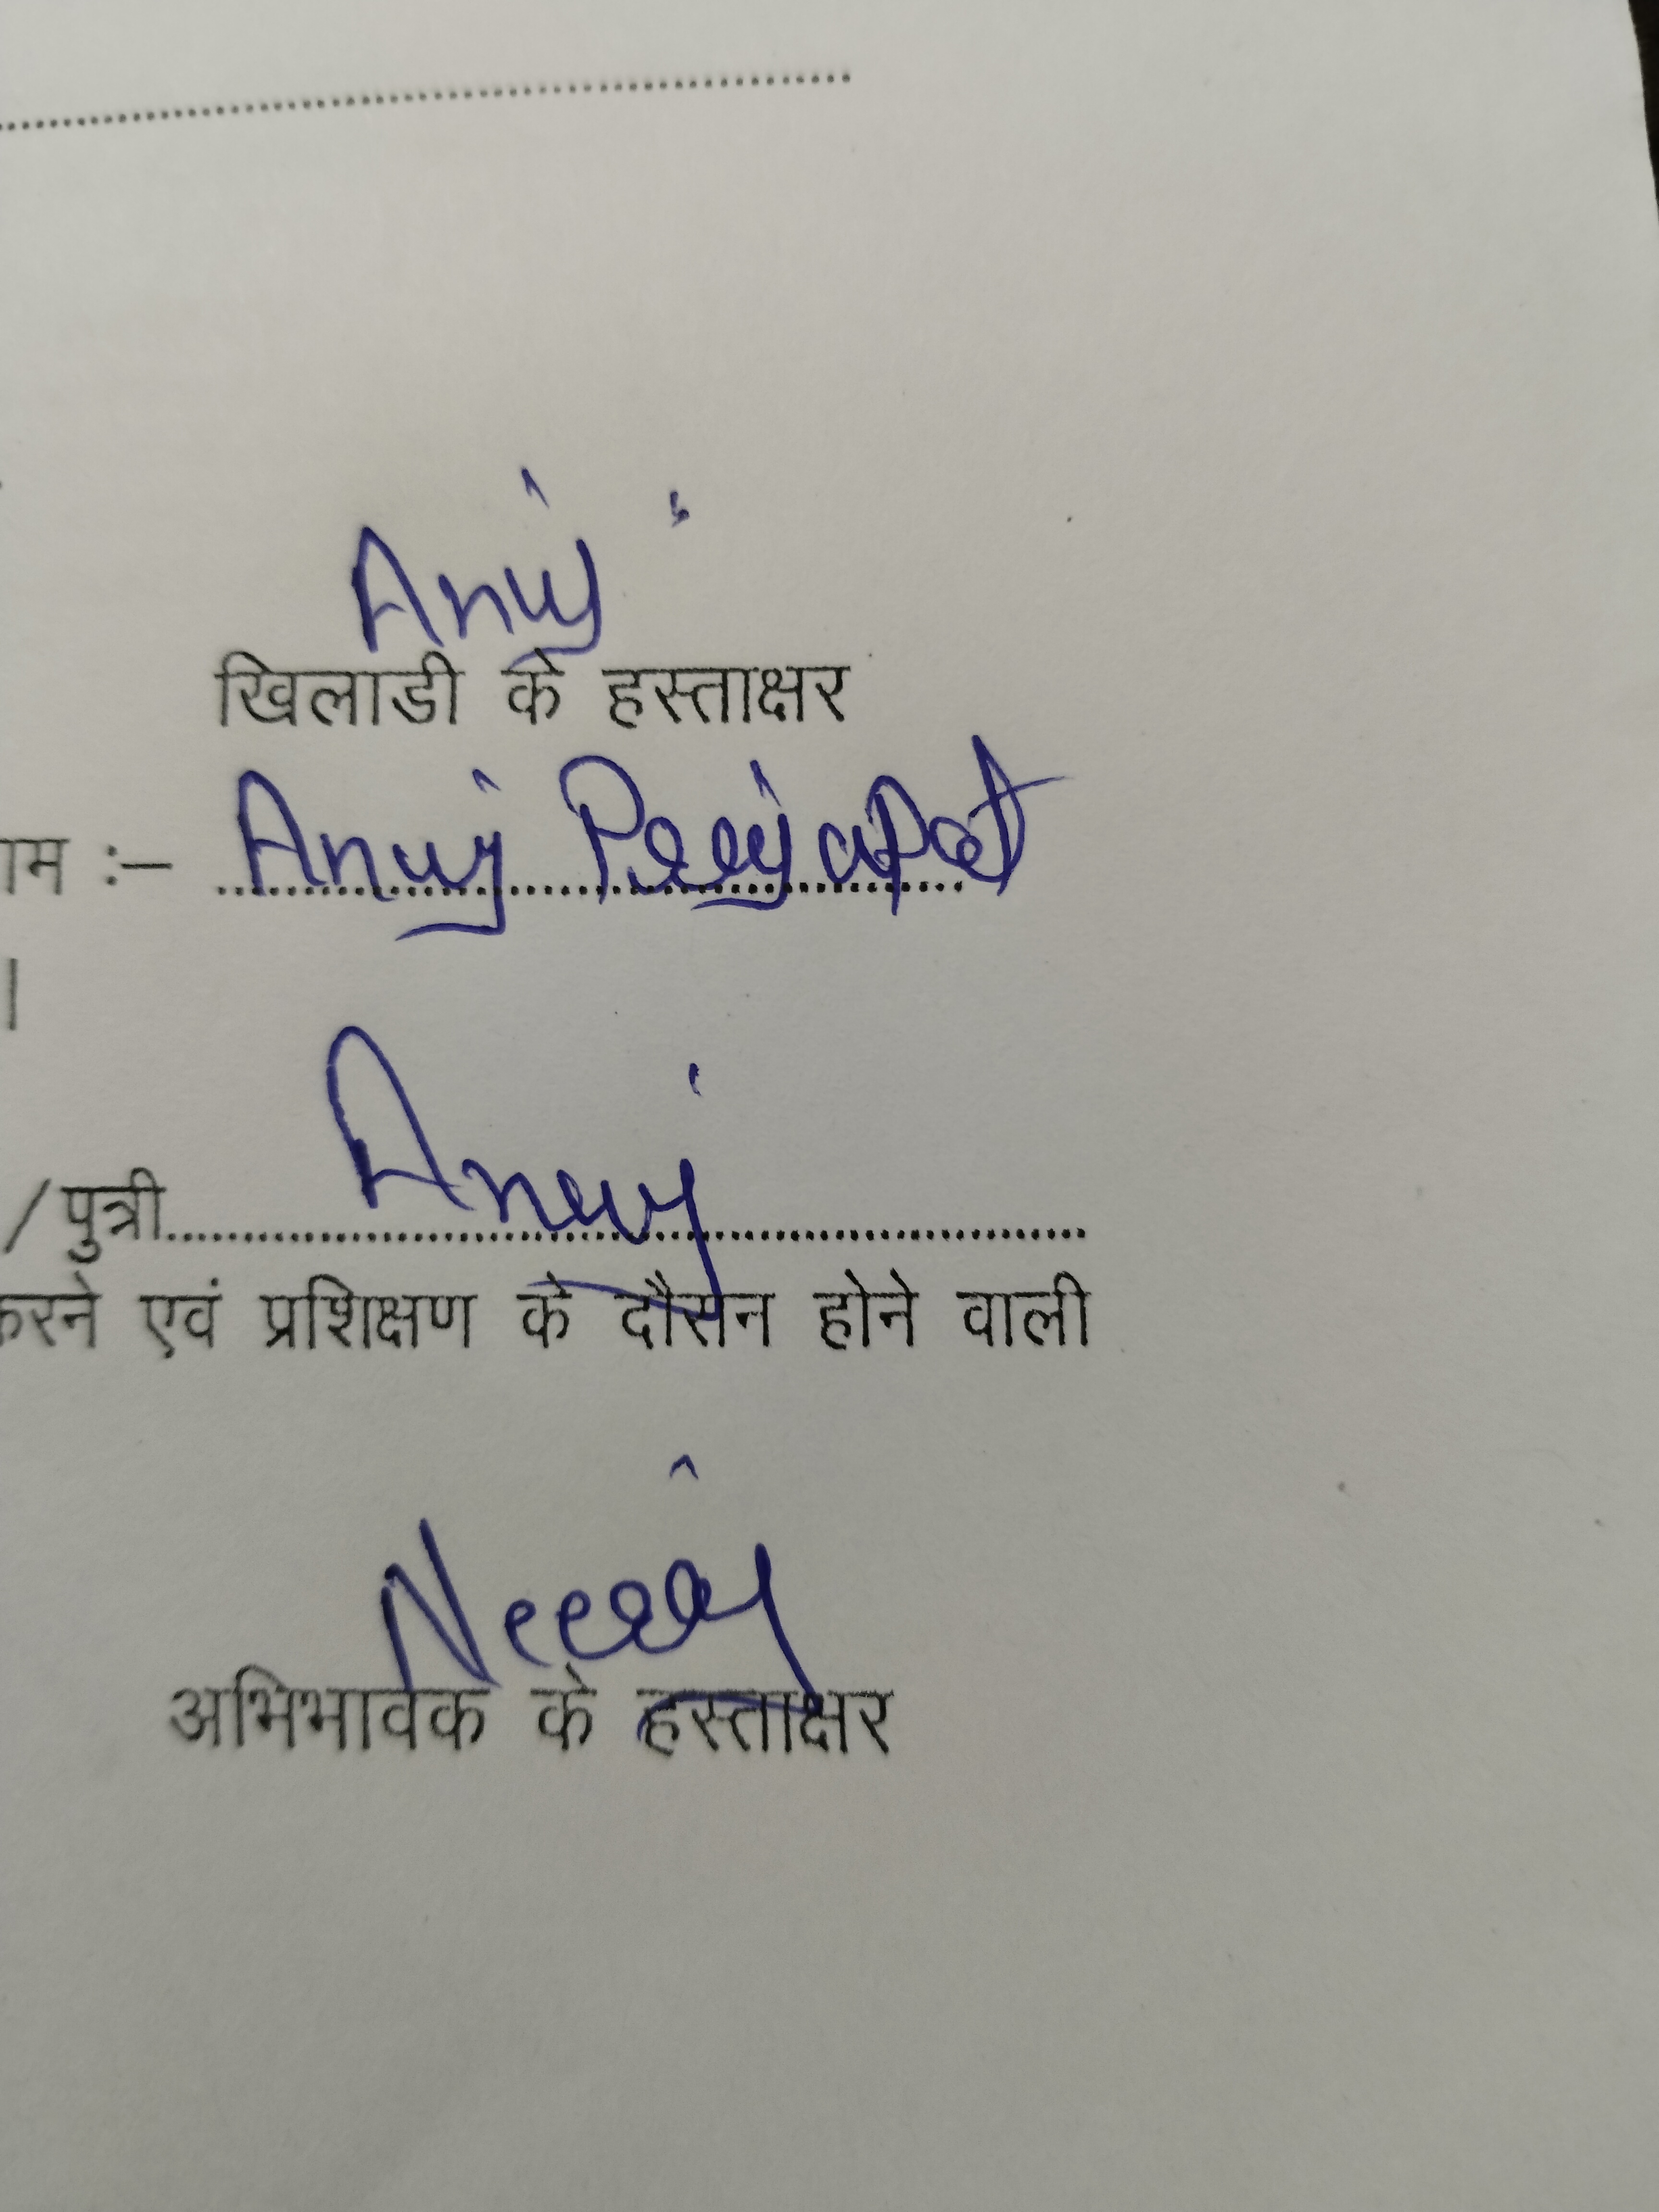 Anuj
खिलाडी के हस्ताक्षर
ाम :– Anuj Prajapat
।
/पुत्री Anuj
करने एवं प्रशिक्षण के दौरान होने वाली
Neeraj
अभिभावक के हस्ताक्षर